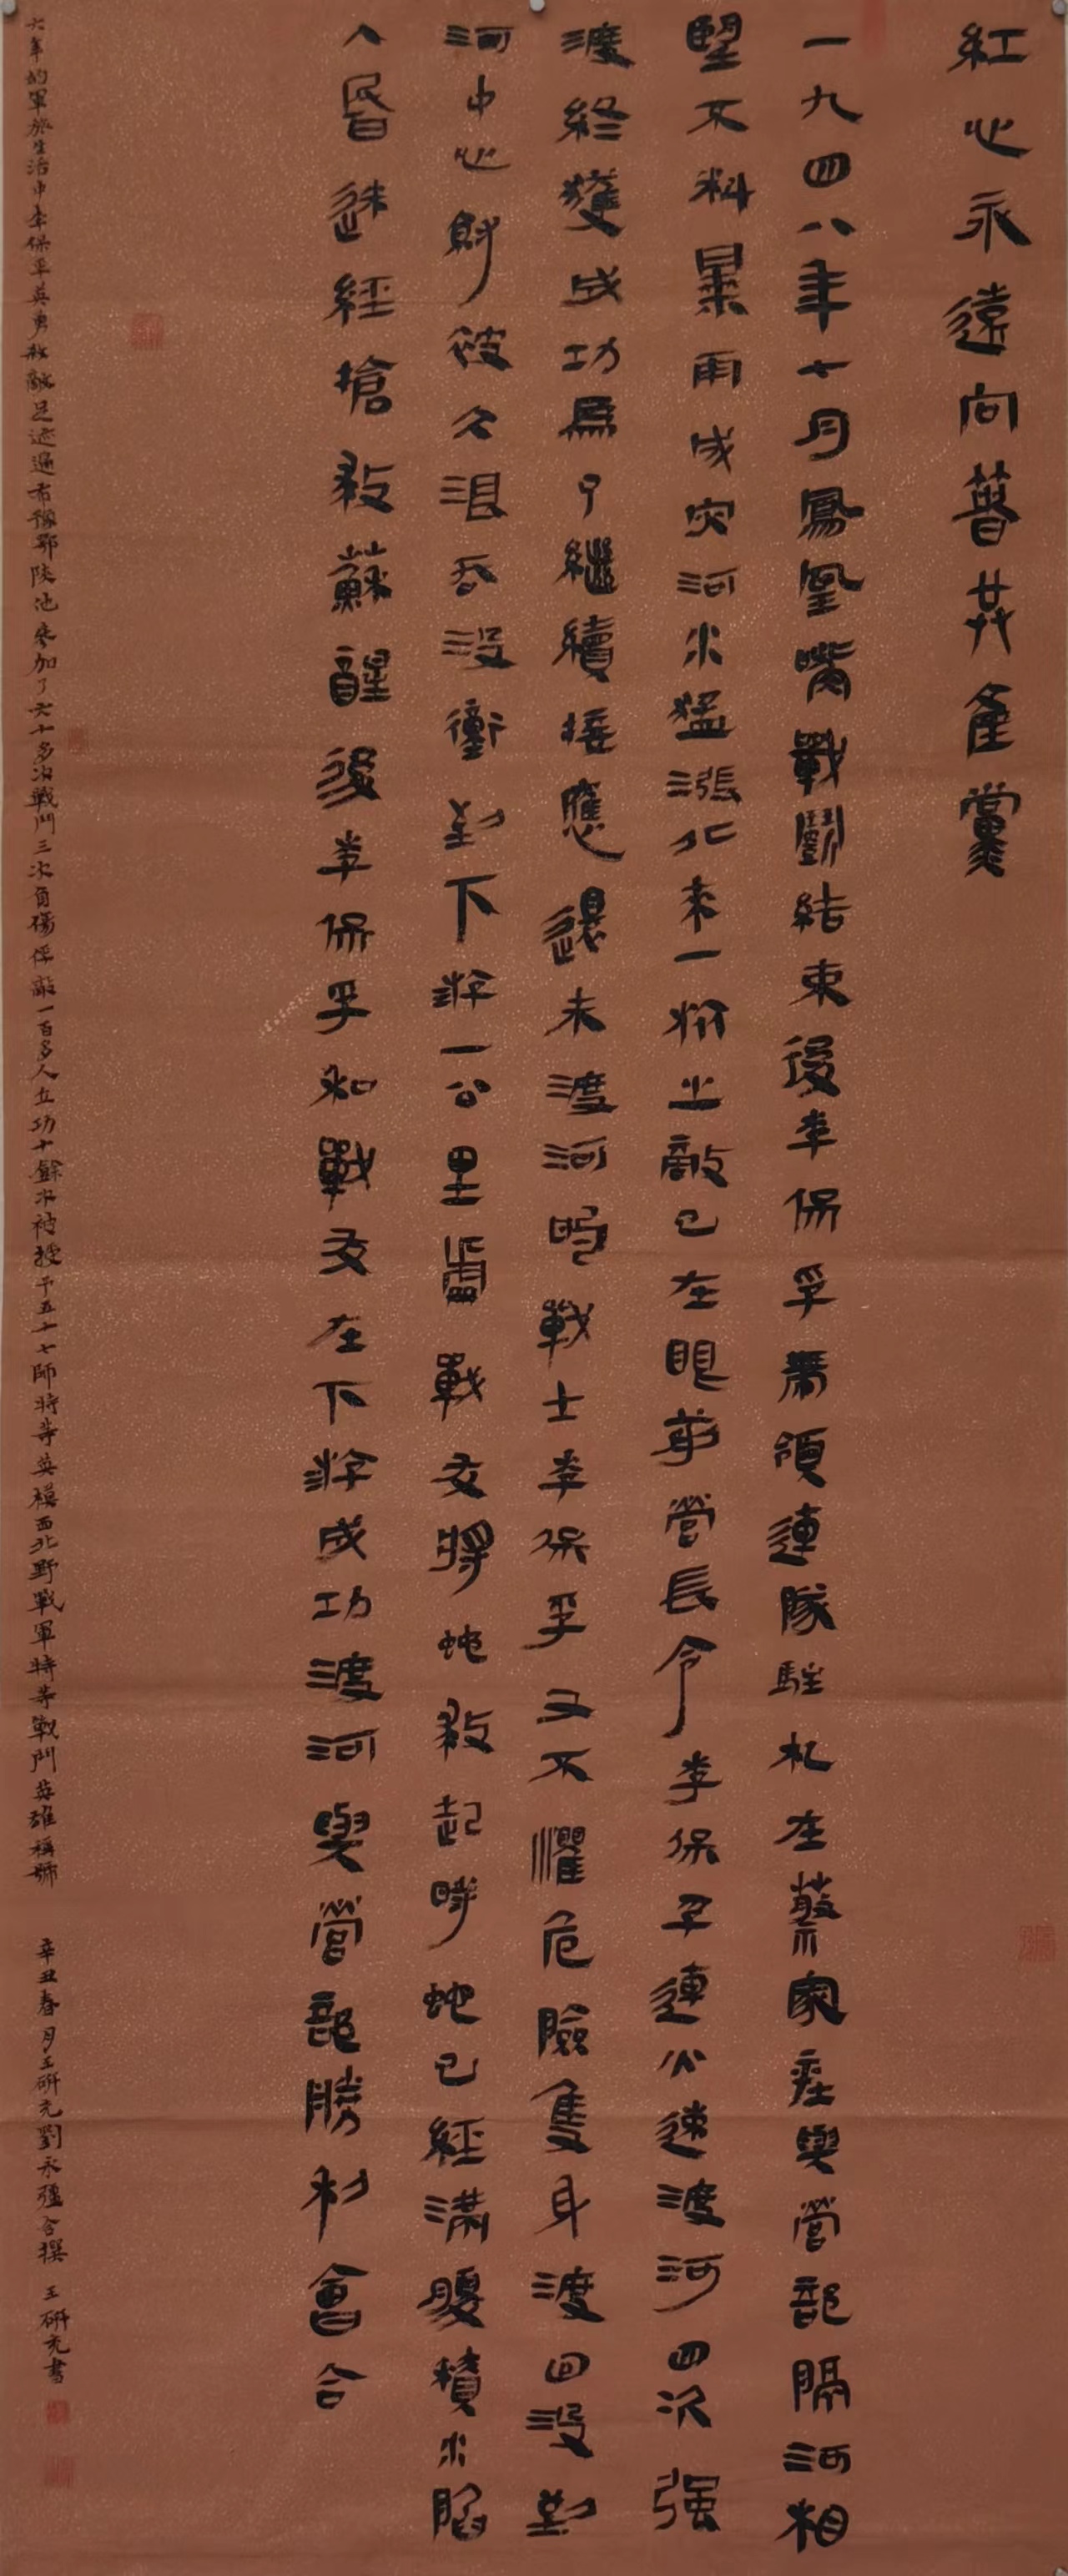 紅心永遠向着共產黨
一九四八年七月鳳凰嘴戰鬪結束後李保孚帶領連隊駐札在蔡家莊與營部隔河相
望不料暴雨成灾河水猛漲北来一股之敵已在眼前營長令李保孚連火速渡河四次强
渡終獲成功爲了繼續接應還未渡河的戰士李保孚又不懼危險隻身渡回没到
河中心時被久浪吞没衝到下游一公里處戰友將他救起時他已經满腹積水陷
入昏迷經搶救蘇醒後李保孚和戰友在下游成功渡河與營部勝利會合
六年的軍旅生活中李保孚英勇殺敵足迹遍布豫鄂陕他参加了六十多次戰鬥三次負傷俘敵一百多人立功十餘次被授予五十七師特等英模西北野戰軍特等戰鬥英雄稱號
辛丑春月王研充劉永疆合撰 王研充書